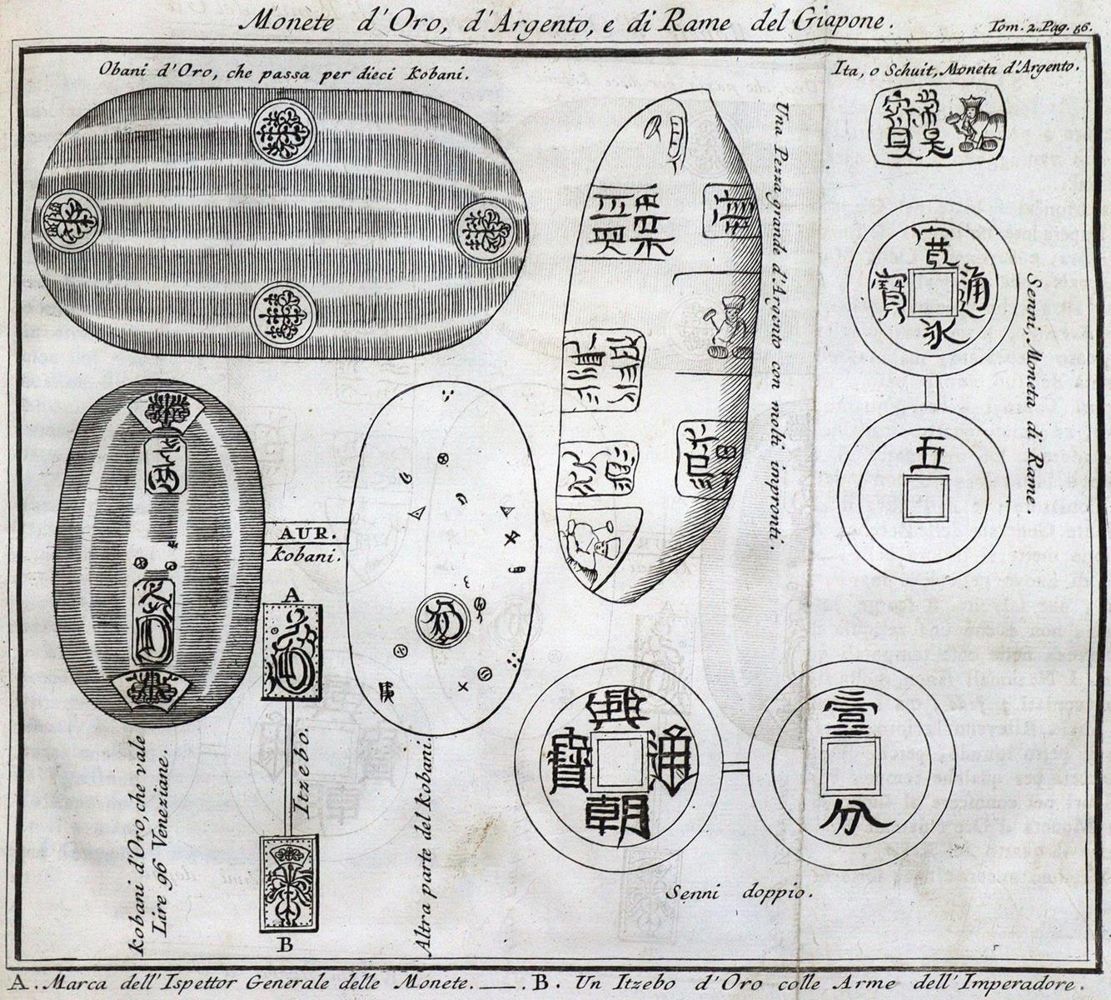 Monete d'Oro, d'Argento, e di Rame del Giapone.
Tom. 2. Pag. 56.
Obani d'Oro, che passa per dieci Kobani.
Ita, o Schuit, Moneta d'Argento.
Una Pezza grande d'Argento con molti impronti.
寛
通
永
寳
Senni, Moneta di Rame
五
AUR.
Kobani.
A
Itzebo.
B
Kobani d'Oro, che vale
Lire 96 Veneziane.
Altra parte del Kobani.
興
通
朝
寶
壹
分
Senni doppio.
A. Marca dell'Ispettor Generale delle Monete. — . B. Un Itzebo d'Oro colle Arme dell'Imperadore.